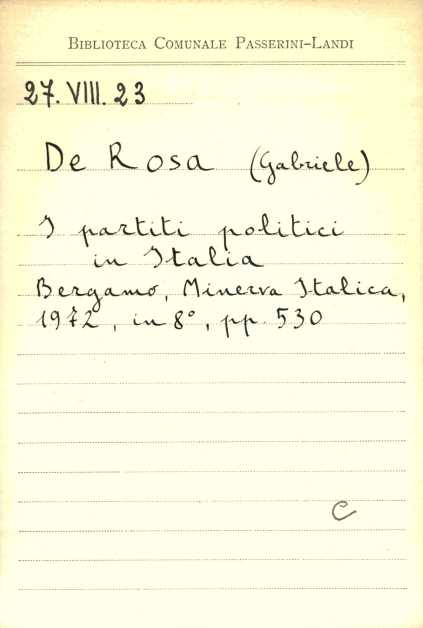 BIBLIOTECA COMUNALE PASSERINI-LANDI
27. VIII. 23
De Rosa (Gabriele)
I partiti politici
in Italia
Bergamo, Minerva Italica,
1972, in 8°, pp. 530
C